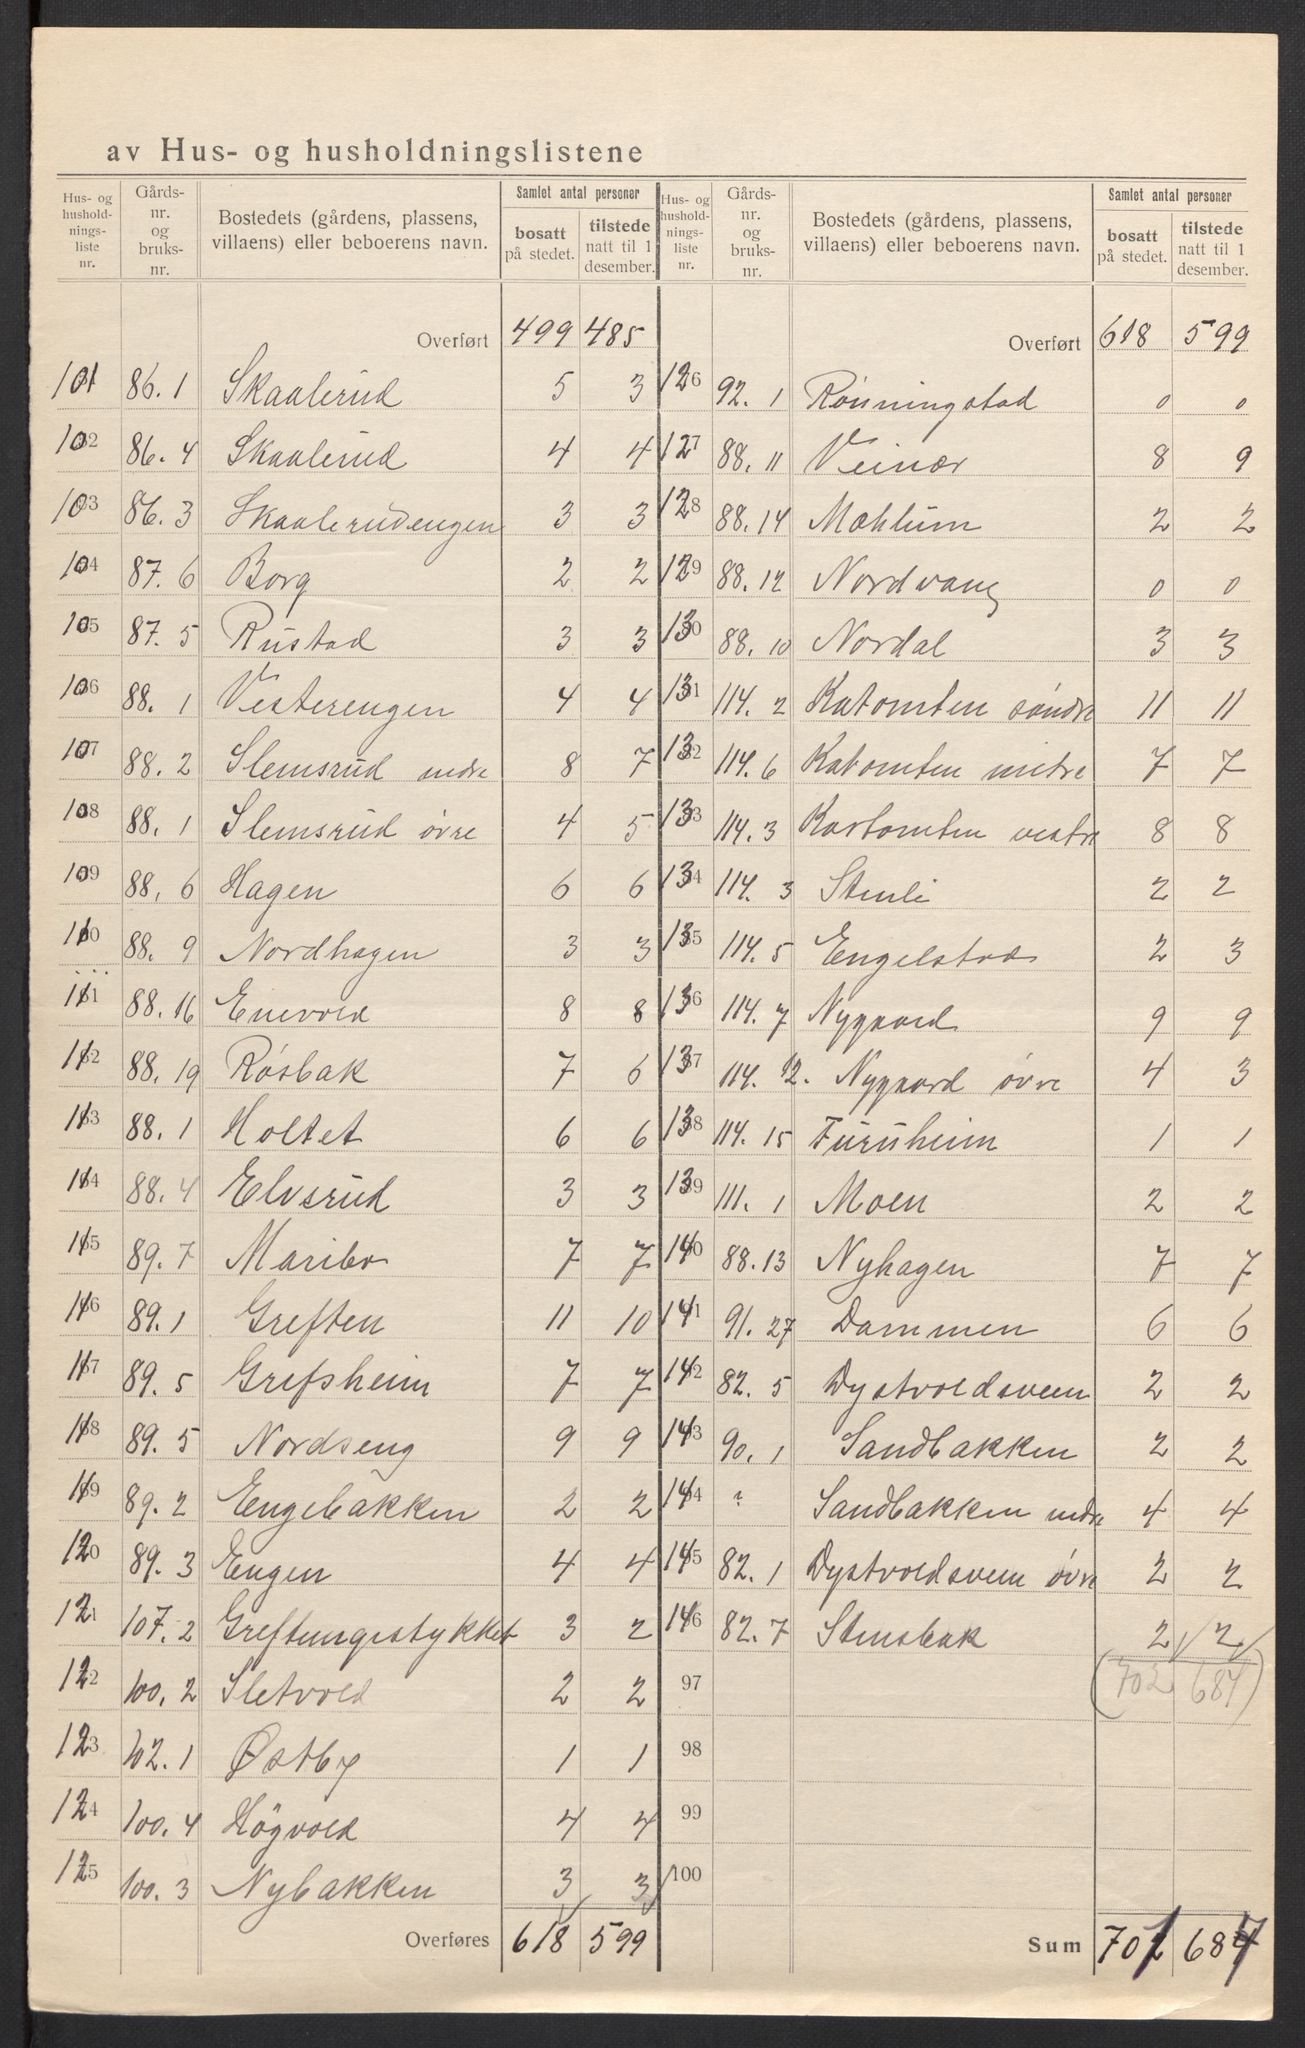 av Hus- og husholdningslistene
Hus- og husholdningsliste nr. | Gårdsnr. og bruksnr. | Bostedets (gårdens, plassens, villaens) eller beboerens navn. | Samlet antal personer: bosatt på stedet. | tilstede natt til 1 desember.
Overført 499 485
101 86.1 Skaalerud 5 3
102 86.4 Skaalerud 4 4
103 86.3 Skaalerudengen 3 3
104 87.6 Borg 2 2
105 87.5 Rustad 3 3
106 88.1 Vesterengen 4 4
107 88.2 Slemsrud nedre 8 7
108 88.1 Slemsrud øvre 4 5
109 88.6 Hagen 6 6
110 88.9 Nordhagen 3 3
111 88.16 Enevold 8 8
112 88.19 Rösbak 7 6
113 88.1 Holtet 6 6
114 88.4 Elvsrud 3 3
115 89.7 Maribo 7 7
116 89.1 Greften 11 10
117 89.5 Grefsheim 7 7
118 89.5 Nordseng 9 9
119 89.2 Engebakken 2 2
120 89.3 Engen 4 4
121 107.2 Greftungsstykket 3 2
122 100.2 Sletvold 2 2
123 102.1 Østby 1 1
124 100.4 Högvold 4 4
125 100.3 Nybakken 3 3
Overføres 618 599
Hus- og husholdningsliste nr. | Gårdsnr. og bruksnr. | Bostedets (gårdens, plassens, villaens) eller beboerens navn. | Samlet antal personer: bosatt på stedet. | tilstede natt til 1 desember.
Overført 618 599
126 92.1 Rönningstad 0 0
127 88.11 Veinær 8 9
128 88.14 Mæhlum 2 2
129 88.12 Nordvang 0 0
130 88.10 Nordal 3 3
131 114.2 Katomten söndre 11 11
132 114.6 Katomten mitre 7 7
133 114.3 Kartomten vestre 8 8
134 114.3 Stenli 2 2
135 114.5 Engelstad 2 3
136 114.7 Nygaard 9 9
137 114.12. Nygaard övre 4 3
138 114.15 Furuheim 1 1
139 111.1 Moen 2 2
140 88.13 Nyhagen 7 7
141 91.27 Dammen 6 6
142 82.5 Dystvoldsveen 2 2
143 90.1 Sandbakken 2 2
144 " Sandbakken nedre 4 4
145 82.1 Dystvoldsveen øvre 2 2
146 82.7 Stensbak 2 2
97 (702 684)
98
99
100
Sum 701 687